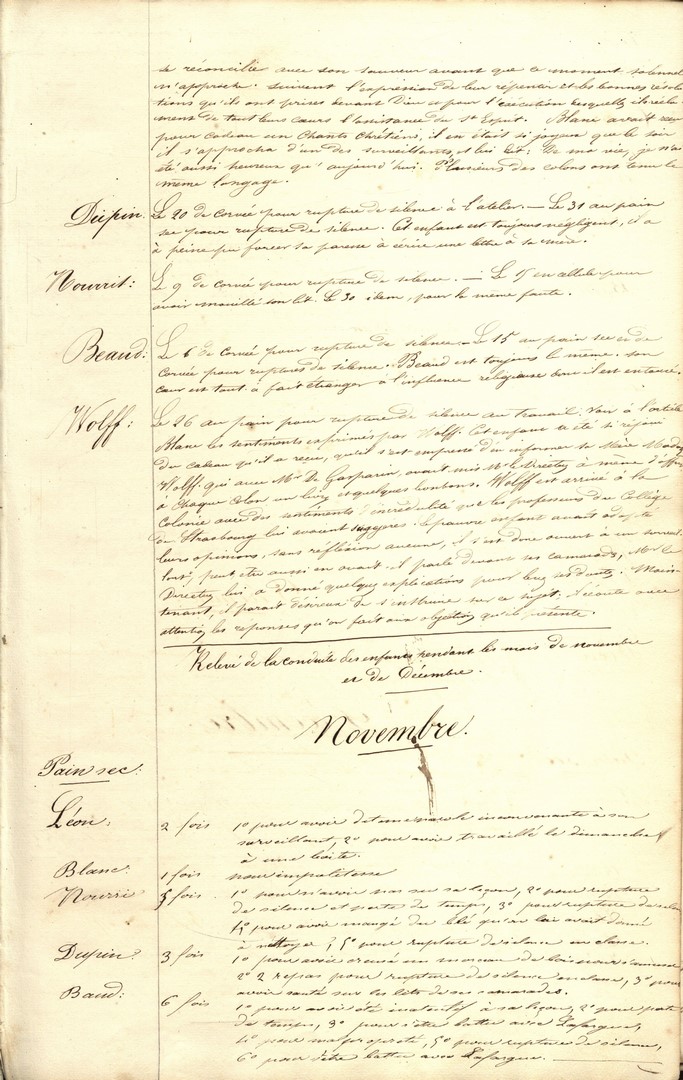 se réconcilie avec son sauveur avant que ce moment solennel
n'approche. suivent l'expression de leur repentir et les bonnes résolu
tions qu'ils ont prises devant Dieu et pour l'exécution desquelles ils récla
ment de tout leurs cœurs l'assistance du St Esprit. Blanc avait reçu
pour cadeau un Chants Chrétiens, il en était si joyeux que le soir
il s'approcha d'un des surveillants, et lui dit: De ma vie, je n'ai
été aussi heureux qu'aujourd'hui. Plusieurs des colons ont tenu le
même langage.
Dupin. Le 20 de corvée pour rupture de silence à l'atelier. — Le 31 au pain
sec pour rupture de silence. Cet enfant est toujours négligent, il a
à peine pu forcer sa paresse à écrire une lettre à sa mère.
Nourrit: Le 9 de corvée pour rupture de silence. — Le 15 en cellule pour
avoir mouillé son lit. Le 30 idem, pour la même faute.
Beaud: Le 6 de corvée pour rupture de silence. — Le 15 au pain sec et de
corvée pour ruptures de silence. Beaud est toujours le même, son
cœur est tout à fait étranger à l'influence religieuse dont il est entouré.
Wolff: Le 26 au pain pour rupture de silence au travail. Voir à l'article
Blanc les sentiments exprimés par Wolff. Cet enfant a été si réjoui
du cadeau qu'il a reçu, qu'il s'est empressé d'en informer sa Mère Madme
Wolff. qui avec Mr De Gasparin, avait mis Mr le Directeur à même d'offrir
à chaque Colon un livre et quelques bonbons. Wolff est arrivé à la
Colonie avec des sentiments d'incrédulité que les professeurs du Collège
de Strasbourg lui avaient suggérés. le pauvre enfant avait adopté
leurs opinions, sans réflexion aucune, il s'est donc ouvert à un surveil
lant, peut être aussi en avait-il parlé devant ses camarades, Mr le
Directeur lui a donné quelques explications pour lever ses doutes. Main
tenant, il paraît désireux de s'instruire sur ce sujet. il écoute avec
attention les réponses qu'on fait aux objections qu'il présente.
Relevé de la conduite des enfants pendant les mois de novembre
et de Décembre.
Novembre.
Pain sec:
Léon: 2 fois 1º pour avoir dit une parole inconvenante à son
surveillant, 2º pour avoir travaillé le dimanche
à une boîte.
Blanc: 1 fois pour impolitesse
Nourri 5 fois. 1º pour n'avoir pas su sa leçon, 2º pour rupture
de silence et perte de temps, 3º pour rupture de silence
4º pour avoir mangé du blé qu'on lui avait donné
à nettoyer; 5º pour rupture de silence en classe.
Dupin: 3 fois 1º pour avoir creusé un morceau de bois pour s'amuser
2º 2 repas pour rupture de silence en classe, 3º pour
avoir sauté sur les lits de ses camarades.
Baud: 6 fois 1º pour avoir été inattentif à sa leçon, 2º pour perte
de temps, 3º pour s'être battu avec Lafargue,
4º pour malpropreté, 5º pour rupture de silence,
6º pour s'être battu avec Lafargue.